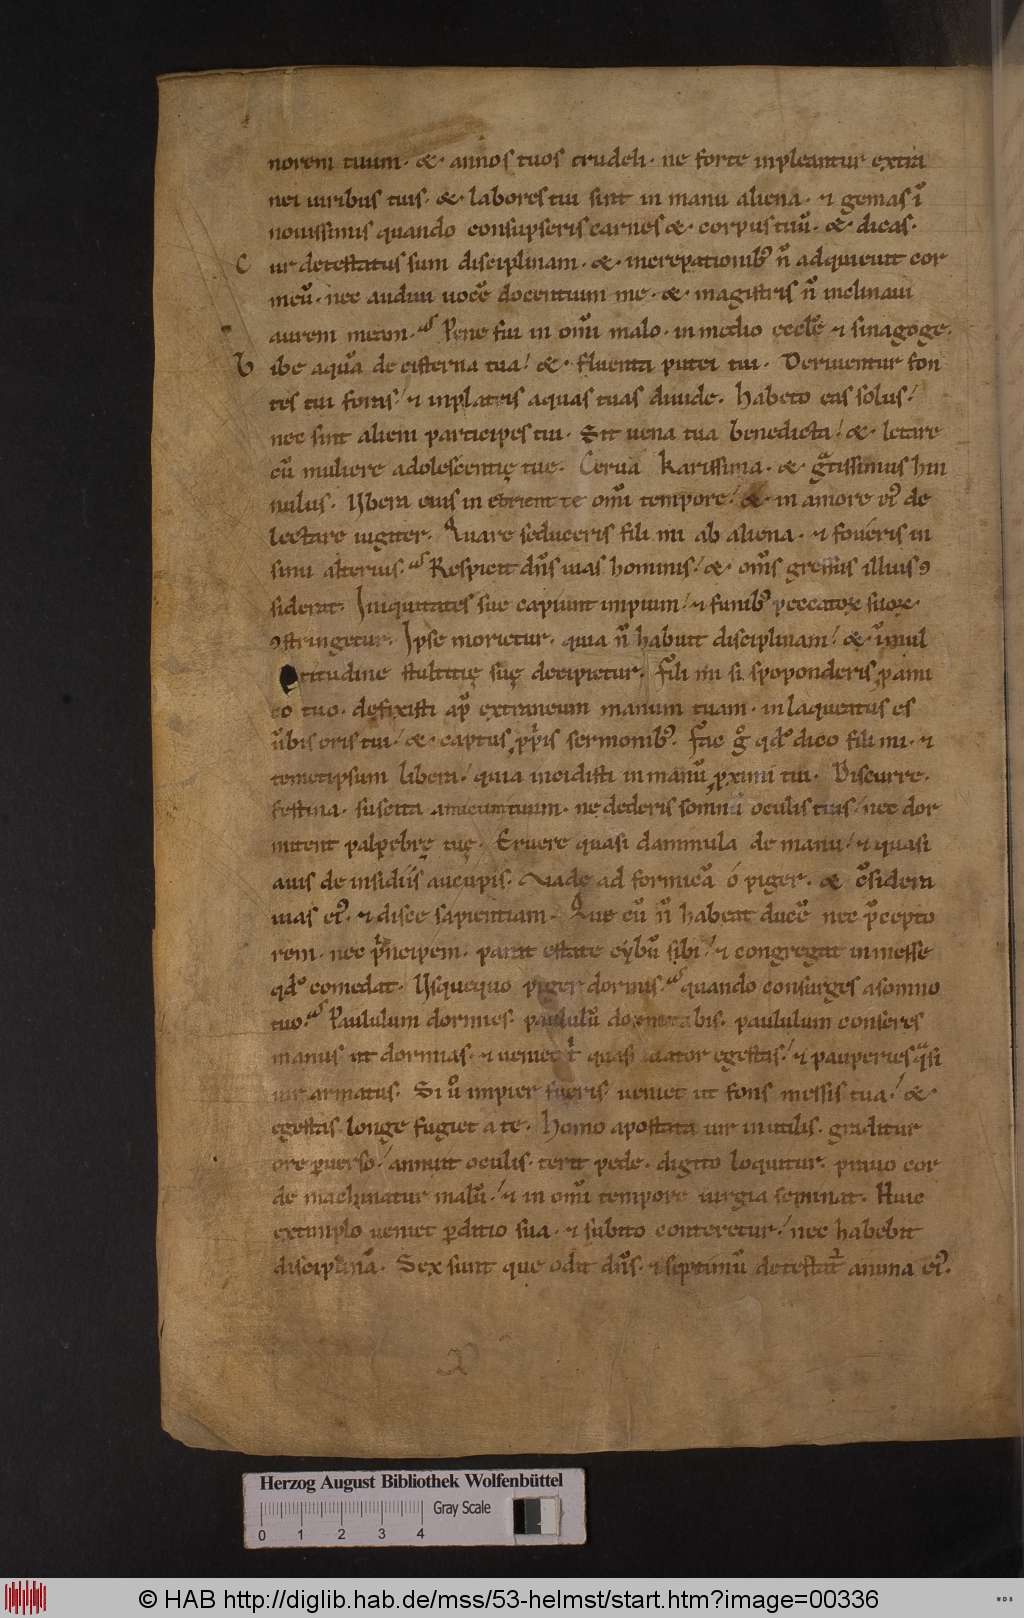 norem tuum · & · annos tuos crudeli · ne forte inpleantur extra
nei uiribus tuis · & · labores tui sint in manu aliena · ⁊ gemas ī
nouissimis quando consupseris carnes & · corpus tuū · & · dicas ·
C ur detestatus sum disciplinam · & · increpationibꝰ ñ adquieuit cor
meū · nec audiui uocē docentium me · & · magistris ñ inclinaui
aurem meam · Pene fui in om̄i malo · in medio eccl̄e ⁊ sinagoge ·
B ibe aquā de cisterna tua / & · fluenta putei tui · Deriuentur fon
tes tui foras / ⁊ inplateis aquas tuas diuide · habeto eas solus /
nec sint alieni participes tui · Sit uena tua benedicta / & · letare
cū muliere adolescentię tue · Cerua karissima · & gͣtissimus hin
nulus · Ubera eius inebrient te om̄i tempore / & · in amore eiꝰ de
lectare iugiter · Quare seduceris fili mi ab aliena · ⁊ foueris in
sinu alterius · Respicit dñs uias hominis / & · om̄s gressus illius ꝯ
siderat · Iniquitates sue capiunt impium / ⁊ funibꝰ peccatoꝝ suoꝝ ·
ꝯstringetur · Ipse morietur · quia ñ habuit disciplinam / & · ī mul
titudine stultitię suę decipietur · Fili mi si spoponderis ꝓ ami
co tuo · defixisti ap̄ extraneum manum tuam · inlaqueatus es
ūbis oris tui / & · captus ꝓpͥis sermonibꝰ · Fac gͦ qd̓ dico fili mi · ⁊
temetipsum libera / quia incidisti in manū ꝓximi tui · Discurre ·
festina · suscita amicum tuum · ne dederis somnū oculis tuis / nec dor
mitent palpebrę tuę · Eruere quasi dammula de manu / ⁊ quasi
auis de insidiis aucupis · Uade ad formicā ó piger · & c̄sidera
uias eiꝰ · ⁊ disce sapientiam · Que cū ñ habeat ducē nec p̄cepto
rem · nec pͥncipem · parat estate cybū sibi / ⁊ congregat in messe
qd̓ comedat · Usquequo piger dormis · quando consurges a somno
tuo · Paululum dormies · paululū dormitabis · paululum conseres
manus ut dormias · ⁊ ueniet t̄ quasi uiator egestas / ⁊ pauperies qͣsi
uir armatus · Si ůo impiger fueris / ueniet ut fons messis tua / & ·
egestas longe fugiet a te · Homo apostata uir inutilis · graditur
ore ꝑuerso / annuit oculis · terit pede · digito loquitur · prauo cor
de machinatur malū / ⁊ in om̄i tempore iurgia seminat · Huic
extimplo ueniet ꝑditio sua · ⁊ subito conteretur / nec habebit
disciplinā · Sex sunt que odit dñs · ⁊ septimū detestat̄ anima eiꝰ ·
Herzog August Bibliothek Wolfenbüttel
Gray Scale
0 1 2 3 4
© HAB http://diglib.hab.de/mss/53-helmst/start.htm?image=00336